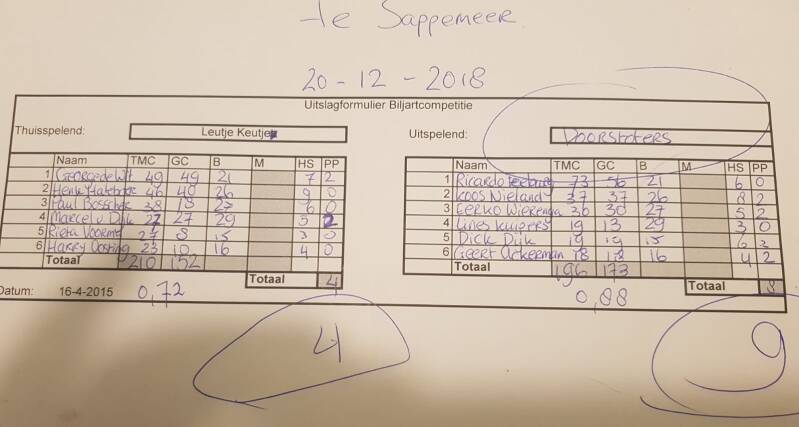 te Sappemeer
20-12-2018
Uitslagformulier Biljartcompetitie
Thuisspelend: Leutje Keutje Uitspelend: Doorstoters
Naam TMC GC B M HS PP Naam TMC GC B M HS PP
1 George de Wit 49 49 21 7 2 1 Ricardo 73 56 21 6 0
2 Henk 46 40 26 9 0 2 Koos Nieland 37 37 26 8 2
3 Paul Bosscher 38 18 27 6 0 3 Eerko Wierenga 30 27 5 2
4 Marcel v Dijk 27 27 29 5 2 4 Kuipers 19 13 29 3 0
5 Rieta 27 8 15 3 0 5 Dick Dijk 19 19 15 6
6 Harry Oosting 23 10 16 4 0 6 Geert Ackerman 18 16 4 2
Totaal 210 152 Totaal 4 Totaal 196 173 Totaal
Datum: 16-4-2015 0,72 0,88
4 9